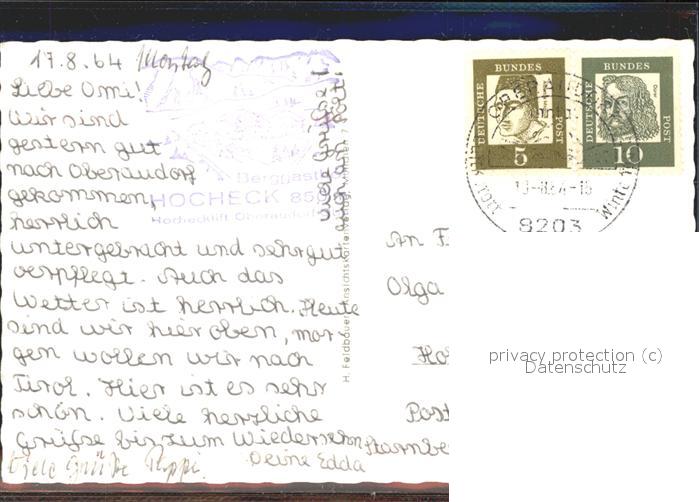 17.8.64 Montag
Liebe Omi!
Wir sind
gestern gut
nach Oberaudorf
gekommen,
herrlich
untergebracht und sehr gut
verpflegt. Auch das
Wetter ist herrlich. Heute
sind wir hier oben, mor-
gen wollen wir nach
Tirol. Hier ist es sehr
schön. Viele herzliche
Grüße bis zum Wiedersehn
Deine Edda
Viele Grüße
viele Grüße!
Berggasth
HOCHECK 850
Hochecklift Oberaudorf
H. Feldbauer, Ansichtskartenverlag, München 7
DEUTSCHE BUNDES POST
5
DEUTSCHE BUNDES POST
Dürer
10
8203
An F
Olga
Post
Starnbe
privacy protection (c)
Datenschutz